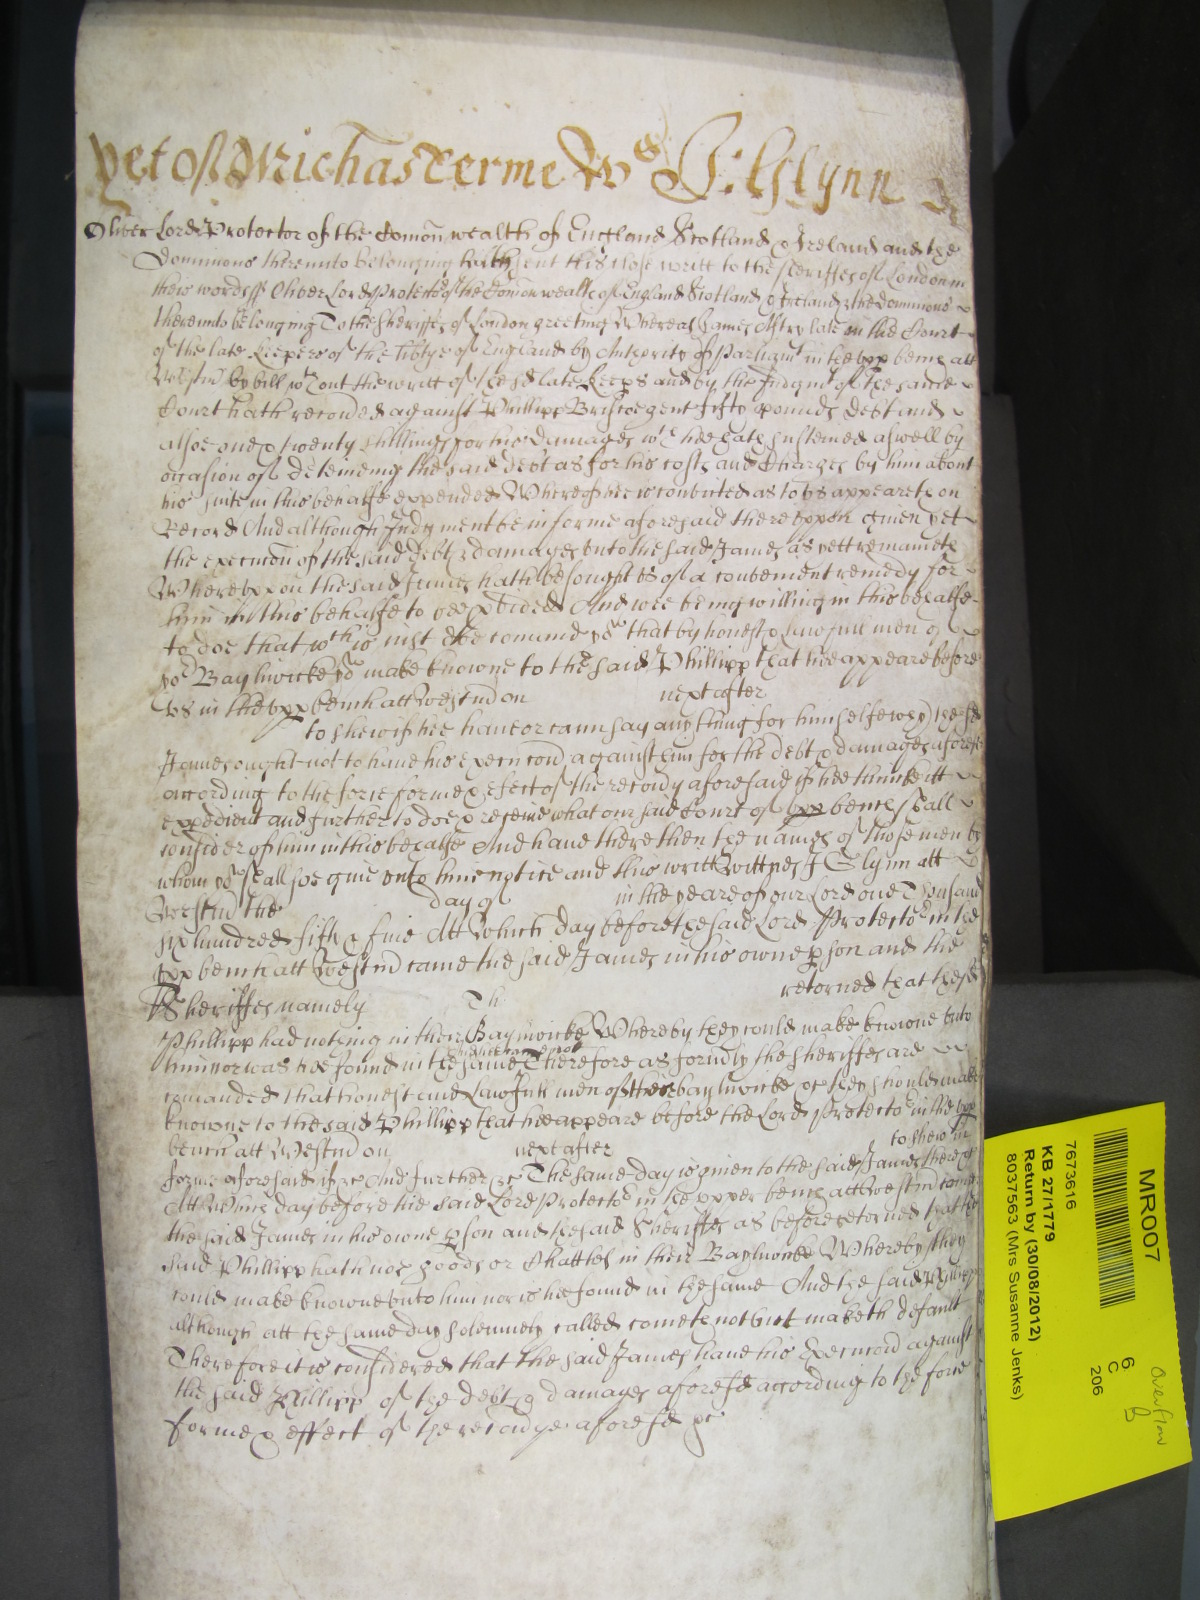 yet of Michas Terme Ws J: Glynn
Oliver Lord Protector of the Comon wealth of England Scotland & Ireland and the
Dominions thereunto belonging hath sent this close writt to the sheriffes of London in
theis words ss Oliver Lord Protector of the Comon wealth of England Scotland & Ireland & the dominions
thereunto belonging To the Sheriffes of London greeting Whereas James late in the Court
of the late Keepers of the libtye of England by Authority of Parliamt in the upp bench att
Westm by bill wthout the writt of the sd late Keeps and by the Judgmt of the same
Court hath recoured against Phillipp Briscoe gent fifty pounds debt and
alsoe one & twenty shillings for his damages wch hee hath susteined aswell by
occasion of deteineing the said debt as for his costs and Charges by him about
his suite in this behalfe expended Whereof hee is convicted as to us appeareth on
Record And although Judgment be in forme aforesaid thereuppon given yet
the execucon of the said debt & damages unto the said James as yett remaineth
Whereuppon the said James hath besought us of a convenient remedy for
him in this behalfe to bee pvided And wee being willing in this behalfe
to doe that wch is just doe comand you that by honest & lawfull men of
yor Bayliwicke you make knowne to the said Phillipp that hee appeare before
us in the upp bench att Westm on next after
to shew if hee have or can say any thing for himselfe why the sd
James ought not to have his execucon against him for the debt & damages aforesd
according to the force forme & effect of the recovy aforesaid if hee thinke itt
expedient and further to doe & receive what our said Court of upp bench shall
consider of him in this behalfe And have there then the names of those men by
whom you shall soe give unto him notice and this writt Wittnes J Glynn att
Westm the day of in the yeare of our Lord one Thousand
six hundred fifty & five Att Which day before the said Lord Protector in the
upp bench att Westm came the said James in his owne pson and the
Sheriffes namely Th: retorned that the sd
Phillipp had nothing in their Baylwicke Whereby they could make knowne unto
him nor was hee found in the same Therefore as formerly the sheriffes are
comanded that honest and Lawfull men of their baylwicke they should make
knowne to the said Phillipp that he appeare before the Lord Protector in the upp
bench att Westm on next after to shew in
forme aforesaid if &c And further &c The same day is given to the said James there &c
Att Which day before the said Lord Protector in the upper bench att Westm comes
the said James in his owne pson and the said Sheriffes as before retorned that the
said Phillipp hath noe goods or Chattles in their Baylwicke Whereby they
could make knowne unto him nor is hee found in the same And the said Phillipp
although att the same day solemnely called cometh not but maketh default
Therefore it is considered that the said James have his Execucon against
the said Phillipp of the debt & damages aforesd according to the force
forme & effect of the recovye aforesd &c
MR007
7673616
KB 27/1779
Return by (30/08/2012)
8037563 (Mrs Susanne Jenks)
6
C
206
Overflow
B